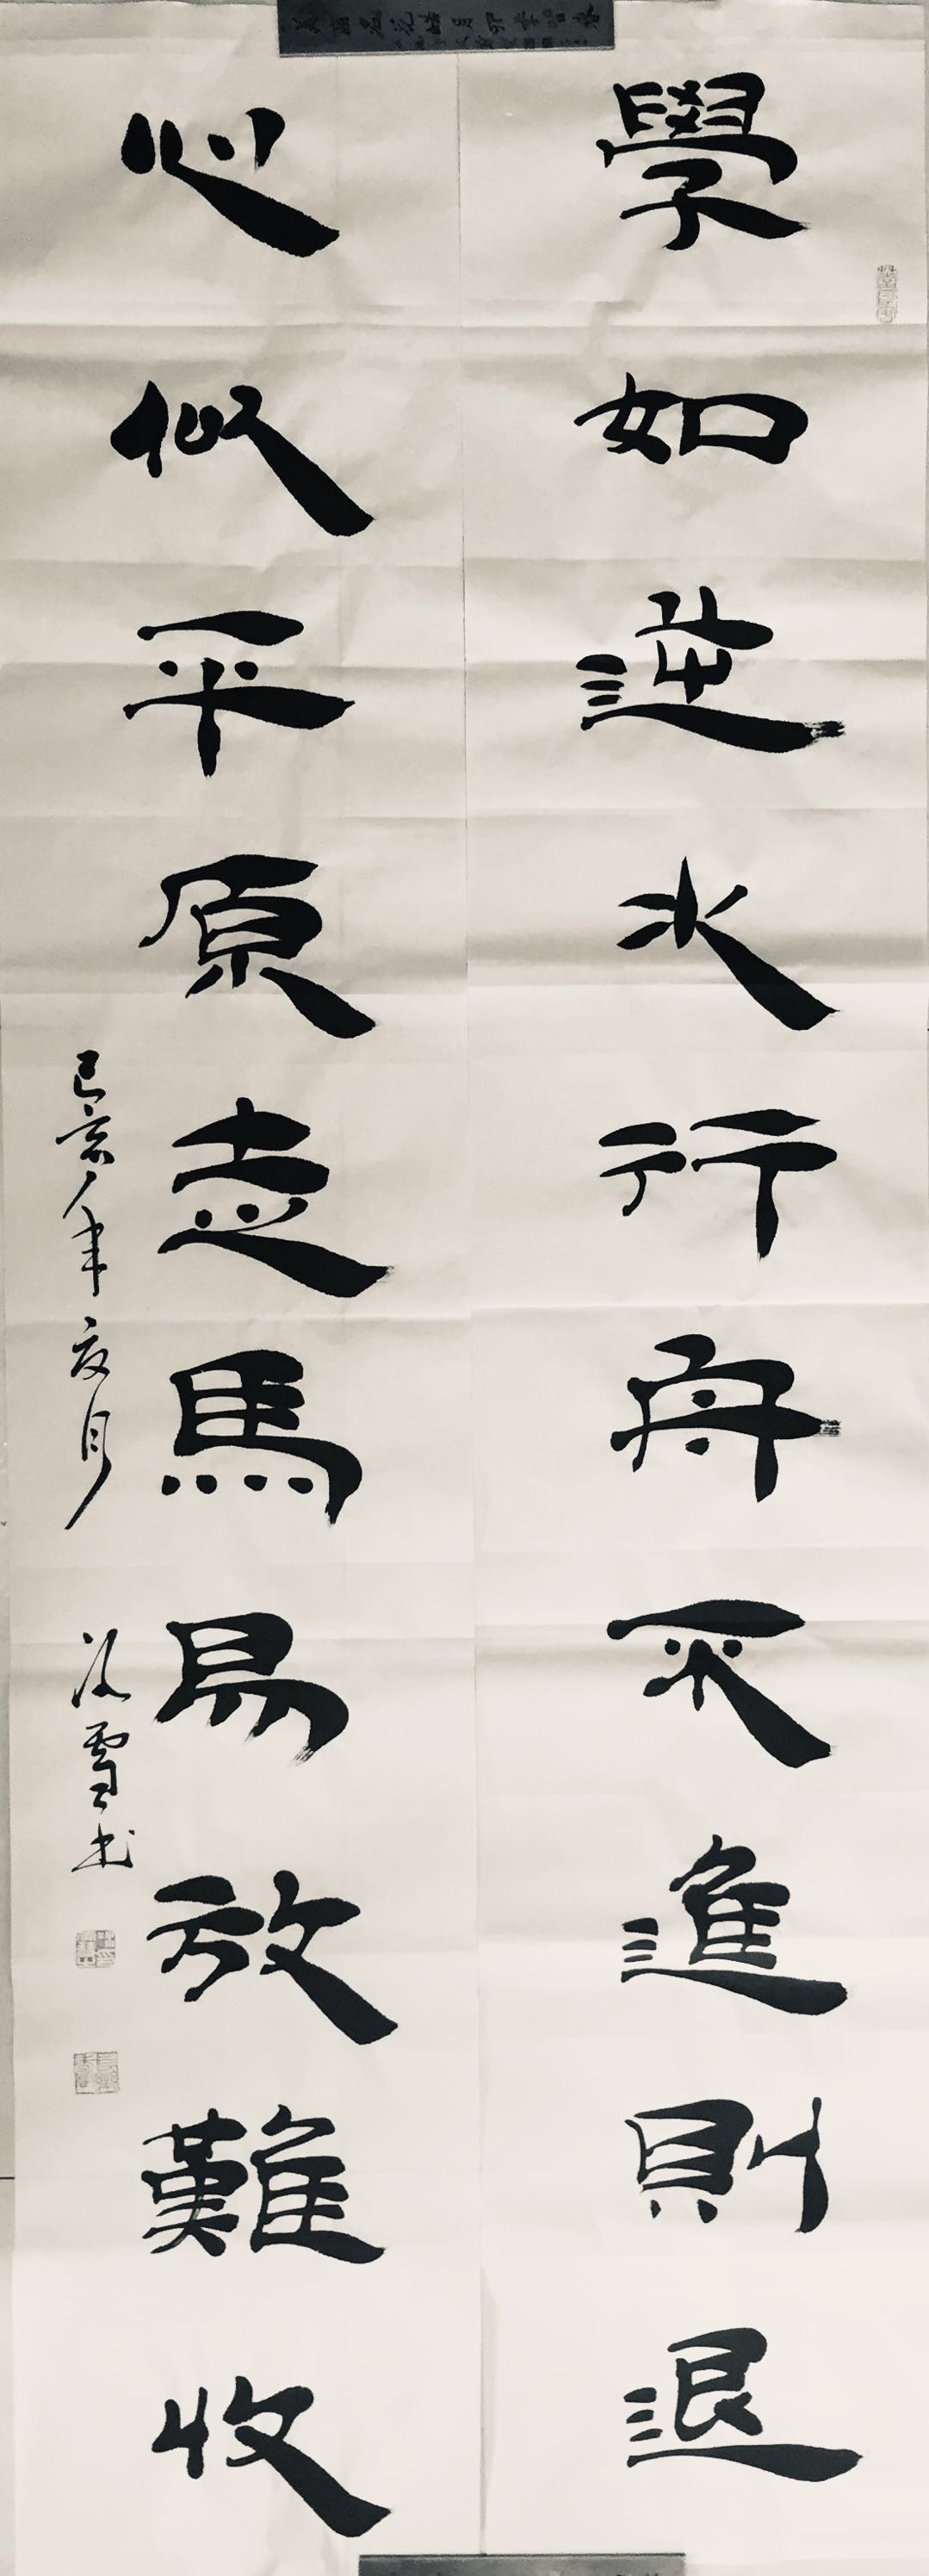 學如逆水行舟不進則退
心似平原走馬易放難收
己亥年夏月
雪書